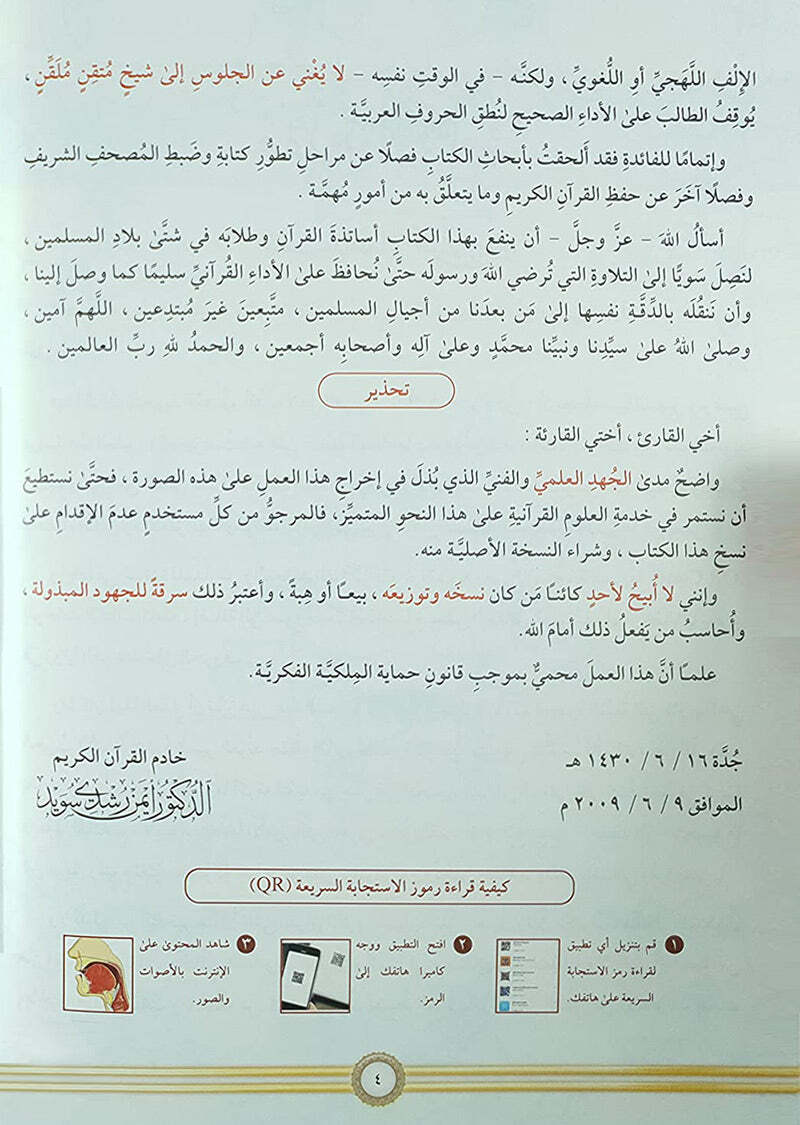 الإِلْفِ اللَّهَجيِّ أوِ اللُّغويِّ ، ولكنَّـه – في الوقتِ نفسِه – لا يُغْني عن الجلوسِ إلىٰ شيخٍ مُتقِنٍ مُلَقِّنٍ ،
يُوقِفُ الطالبَ علىٰ الأداءِ الصحيحِ لنُطقِ الحروفِ العربيَّـة .
وإتمامًا للفائدةِ فقد أَلحقتُ بأبحاثِ الكتابِ فصلًا عن مراحلِ تطوُّرِ كتابةِ وضَبطِ المُصحفِ الشريفِ
وفصلًا آخَرَ عن حفظِ القرآنِ الكريمِ وما يتعلَّقُ به من أمورٍ مُهمَّـة .
أسألُ اللهَ – عزَّ وجلَّ – أن ينفعَ بهذا الكتابِ أساتذةَ القرآنِ وطلابَه في شتَّىٰ بلادِ المسلمين ،
لنَصِلَ سَويًّا إلىٰ التلاوةِ التي تُرضي اللهَ ورسولَه حتَّىٰ نُحافظَ علىٰ الأداءِ القُرآنيِّ سليمًا كما وصلَ إلينا ،
وأن نَنقُلَه بالدِّقَّـةِ نفسِها إلىٰ مَن بعدَنا من أجيالِ المسلمين ، متَّبِعينَ غيرَ مُبتدِعين ، اللَّهمَّ آمين ،
وصلىٰ اللهُ علىٰ سيِّدِنا ونبيِّنا محمَّدٍ وعلىٰ آلِه وأصحابِه أجمعين ، والحمدُ للهِ ربِّ العالمين .
تحذير
أخي القارئ ، أختي القارئة :
واضحٌ مدىٰ الجُهدِ العلميِّ والفنيِّ الذي بُذلَ في إخراجِ هذا العملِ علىٰ هذه الصورة ، فحتَّىٰ نستطيعَ
أن نستمر في خدمةِ العلومِ القرآنيةِ علىٰ هذا النحوِ المتميِّز، فالمرجوُّ من كلِّ مستخدمٍ عدمَ الإقدامِ علىٰ
نسخِ هذا الكتاب ، وشراء النسخة الأصليَّـة منه.
وإنني لا أُبيحُ لأحدٍ كائنًـا مَن كان نسخَه وتوزيعَه ، بيعًـا أو هِبةً ، وأعتبرُ ذلك سرقةً للجهود المبذولة ،
وأُحاسبُ من يَفعلُ ذلك أمامَ الله.
علمًـا أنَّ هذا العملَ محميٌّ بموجبِ قانونِ حماية المِلكيَّـة الفكريَّـة.
جُدَّة ١٦ / ٦ / ١٤٣٠ هـ
خادم القرآن الكريم
الموافق ٩ / ٦ / ٢٠٠٩ م
الدكتور أيمن رشدي سويد
كيفية قراءة رموز الاستجابة السريعة (QR)
١ قم بتنزيل أي تطبيق
لقراءة رمز الاستجابة
السريعة علىٰ هاتفك.
٢ افتح التطبيق ووجه
كاميرا هاتفك إلىٰ
الرمز.
٣ شاهد المحتوىٰ علىٰ
الإنترنت بالأصوات
والصور.
٤